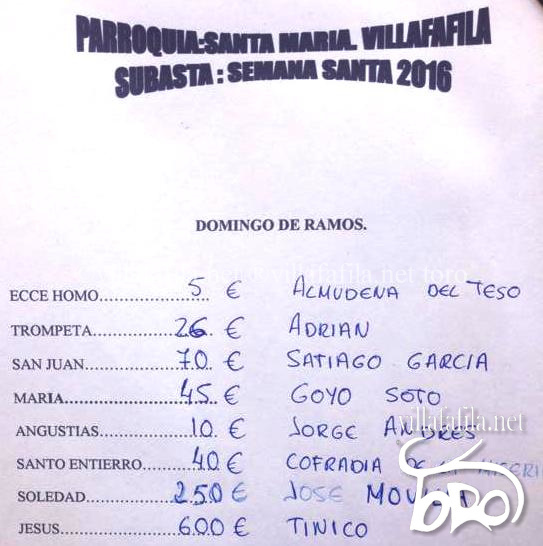 PARROQUIA:SANTA MARIA. VILLAFAFILA
SUBASTA : SEMANA SANTA 2016
DOMINGO DE RAMOS.
villafafila.net toro
ECCE HOMO.................... 5 € ALMUDENA DEL TESO
TROMPETA.................... 26 € ADRIAN
SAN JUAN..................... 70 € SATIAGO GARCIA
MARIA......................... 45 € GOYO SOTO
villafafila.net
ANGUSTIAS.................... 10 € JORGE ANDRES
SANTO ENTIERRO............ 40 € COFRADIA DE
SOLEDAD....................... 250 € JOSE
JESUS........................... 600 € TINICO
TORO